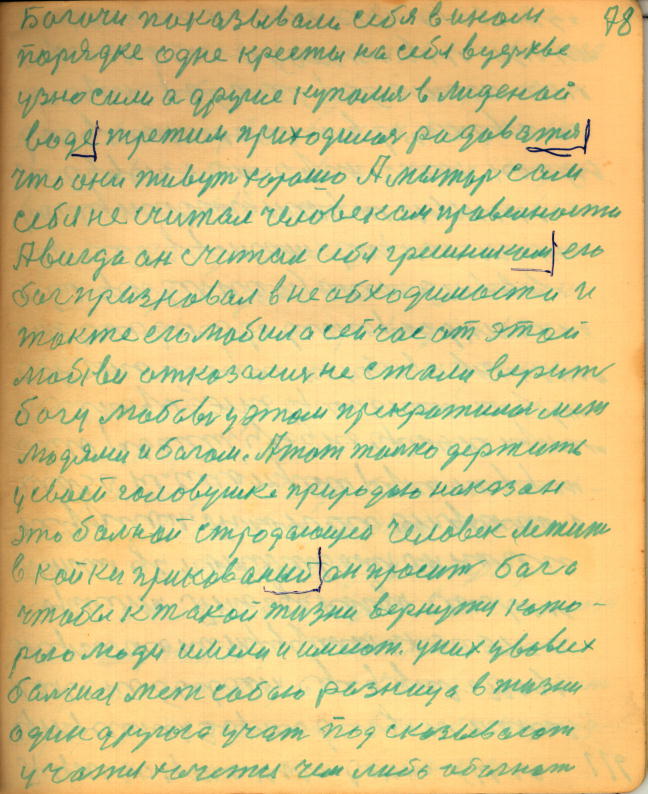 78
Богочи показывали себя в ином
порядке одне кресты на себя в церкве
узносили а другие купалися в лиденой
воде третим приходилися радоватя
что они живут хорошо А мытыр сам
себя не считал человекам правелности
А всигда он считал себя грешником его
бог призновал в необходимости и
также его любил а сейчас от этой
любви отказалися не стали верит
богу любовь у этом прекратилася меж
людями и богом. А тот толко держить
у своей головушке природою наказан
это балной страдающей человек лежит
в койки прикованый он просит бога
чтобы к такой жизни вернутя кото-
рою люди имели и имеют. у них у вовсех
болшая меж собою разница в жизни
один другога учат под сказывают
учатя хочетя чем либо